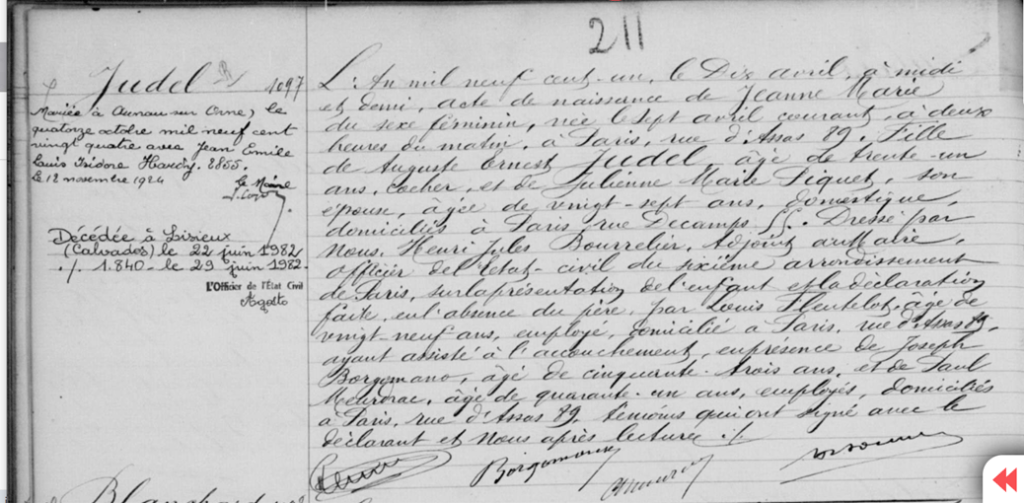 211
Judel
1097
Mariée à Aunau sur Orne) le
quatorze octobre mil neuf cent
vingt quatre avec Jean Emile
Louis Isidore
2855.
le 12 novembre 1924
le Maire
Décédée à Lisieux
(Calvados) le 22 juin 1982
./. 1.840 - le 29 juin 1982.
L'Officier de l'État Civil
Agotto
L'An mil neuf cent-un, le Dix avril, à midi
et demi, acte de naissance de Jeanne Marie
du sexe féminin, née le sept avril courant, à deux
heures du matin, à Paris, rue d'Assas 89. Fille
de Auguste Ernest Judel, âgé de trente-un
ans, cocher, et de Julienne Marie Piquet, son
épouse, âgée de vingt-sept ans, domestique,
domiciliés à Paris, rue Decamps 55. Dressé par
Nous, Henri Jules Bourrelier, Adjoint au Maire,
officier de l'état-civil du sixième arrondissement
de Paris, sur la présentation de l'enfant et la déclaration
faite, en l'absence du père, par Louis Fleutelot, âgé de
vingt-neuf ans, employé, domicilié à Paris, rue d'Assas 89,
ayant assisté à l'accouchement, en présence de Joseph
Borgomano, âgé de cinquante-trois ans, et de Paul
Meurdrac, âgé de quarante-un ans, employés, domiciliés
à Paris, rue d'Assas 89, témoins qui ont signé avec le
déclarant et Nous après lecture ./.
Borgomano
Blanchard